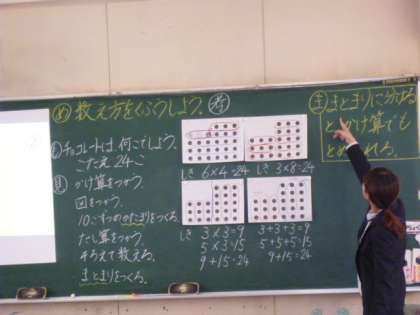 め 数え方をくふうしよう。
も チョコレートは、何こでしょう。
こたえ 24こ
見 かけ算をつかう。
図をつかう。
10こずつのかたまりをつくる。
たし算をつかう。
そろえて数える。
まとまりをつくる。
考
しき 6×4=24
しき 3×8=24
しき 3×3=9
5×3=15
9+15=24
3+3+3=9
5+5+5=15
9+15=24
ま まとまりに分ける
と、かけ算でも
とめられる。